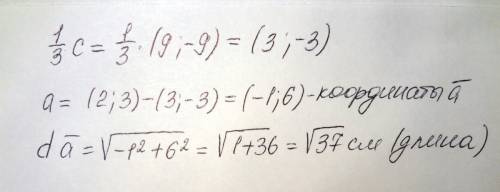 1/3 c = 1/3 · (9 ; -9) = (3 ; -3)
a = (2 ; 3) - (3 ; -3) = (-1 ; 6) - координаты a̅
d a̅ = √-1² + 6² = √1 + 36 = √37 см (длина)